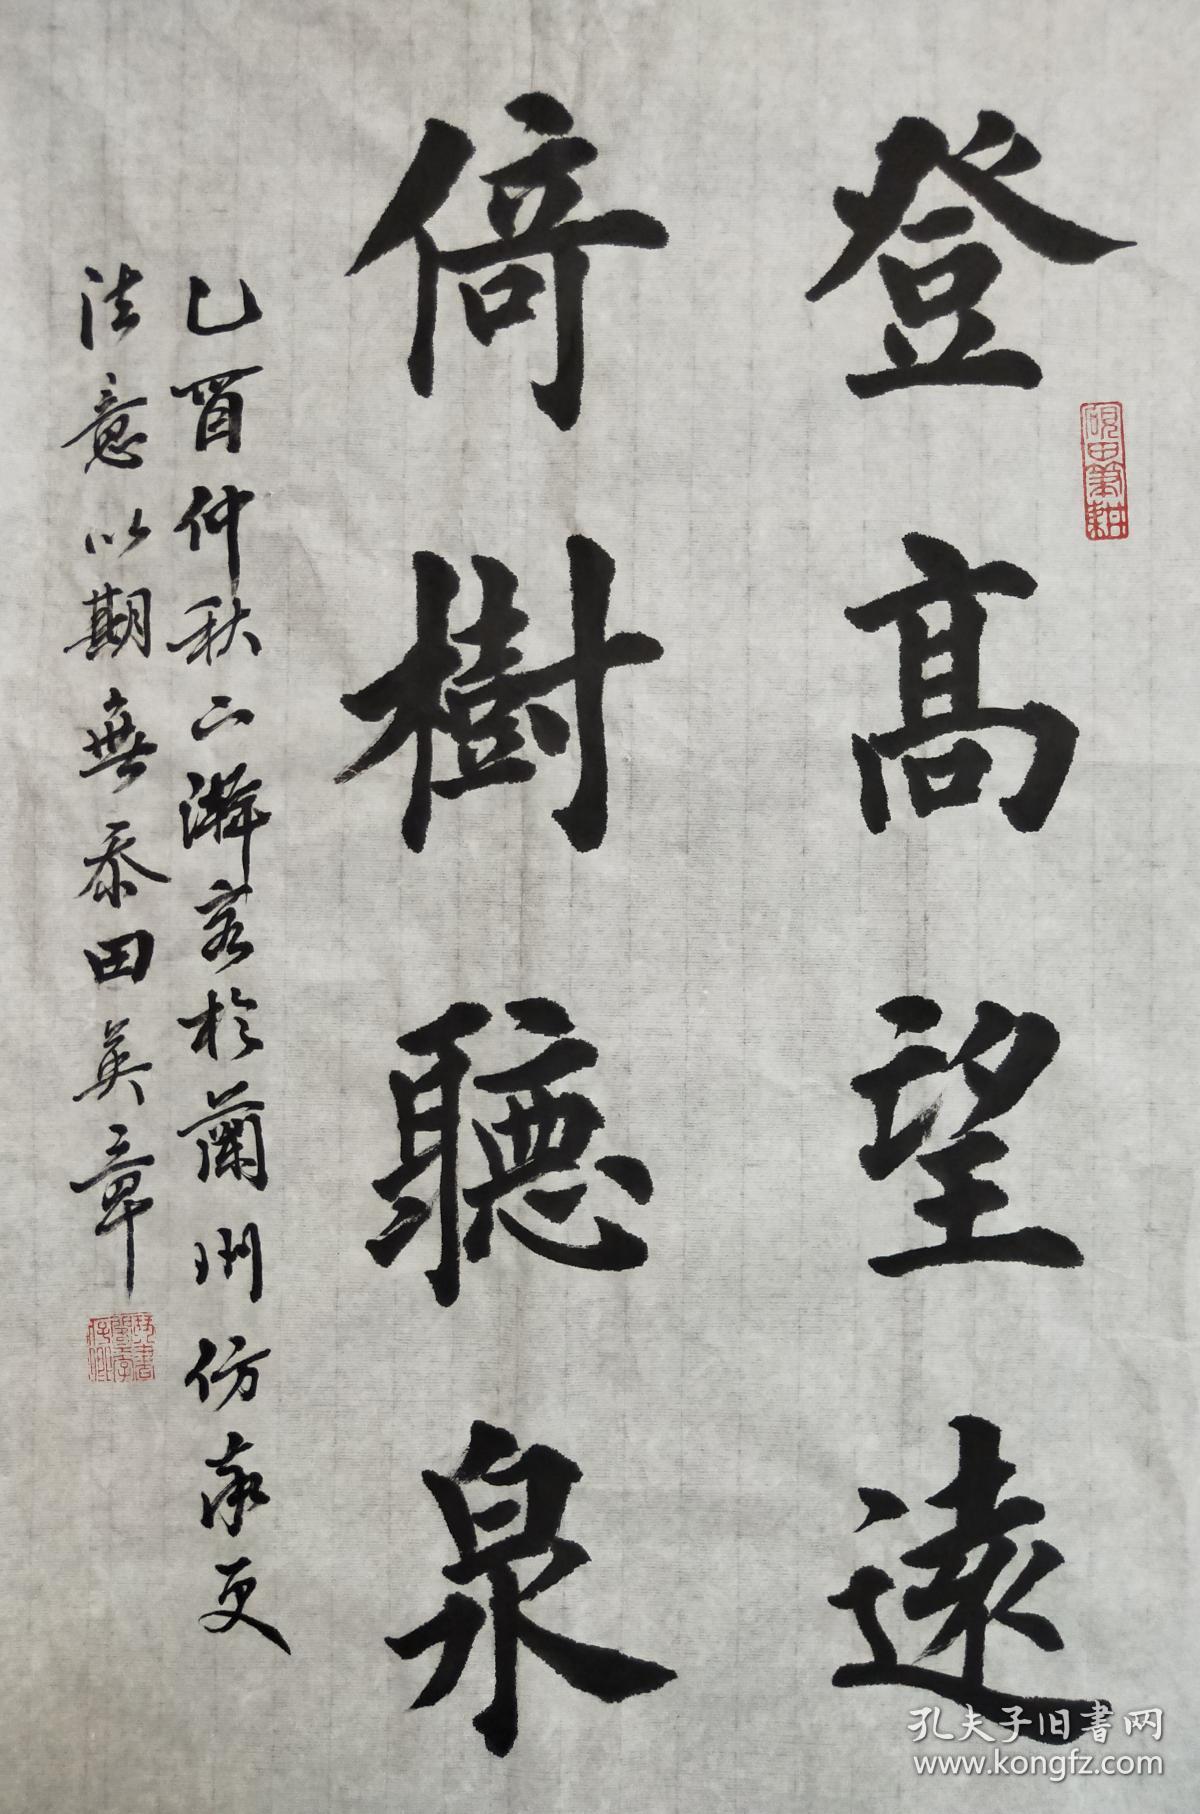 登高望遠
倚樹聽泉
乙酉仲秋二澣客於蘭州仿率更
法意以期無忝田英章
硯田筆耕
孔夫子旧書网
www.kongfz.com